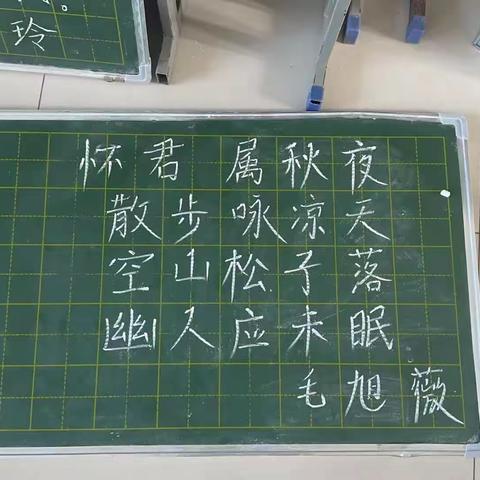 玲
怀君属秋夜
散步咏凉天
空山松子落
幽人应未眠
毛旭薇